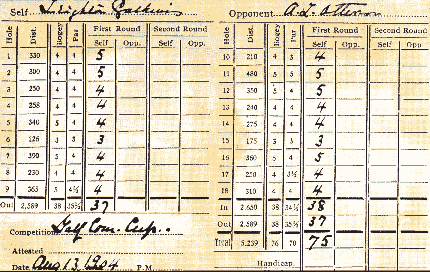 Self Leighton Calkins
Opponent A. L.
Hole Dist. Bogey Par First Round Second Round
Self Opp. Self Opp.
1 330 4 4 5
2 300 4 4 5
3 250 4 4 4
4 258 4 4 4
5 340 5 4 4
6 126 3 3 3
7 390 5 4 4
8 230 4 4 4
9 365 5 4½ 4
Out 2,589 38 35½ 37
Hole Dist. Bogey Par First Round Second Round
Self Opp. Self Opp.
10 210 4 3 4
11 480 5 5 5
12 350 5 4 5
13 240 4 4 4
14 275 4 4 4
15 175 3 3 3
16 360 5 4 5
17 250 4 3½ 4
18 310 4 4 4
In 2,650 38 34½ 38
Out 2,589 38 35½ 37
Total 5,239 76 70 75
Competition Golf Com. Cup.
Attested
Date Aug 13, 1904 P.M.
Handicap